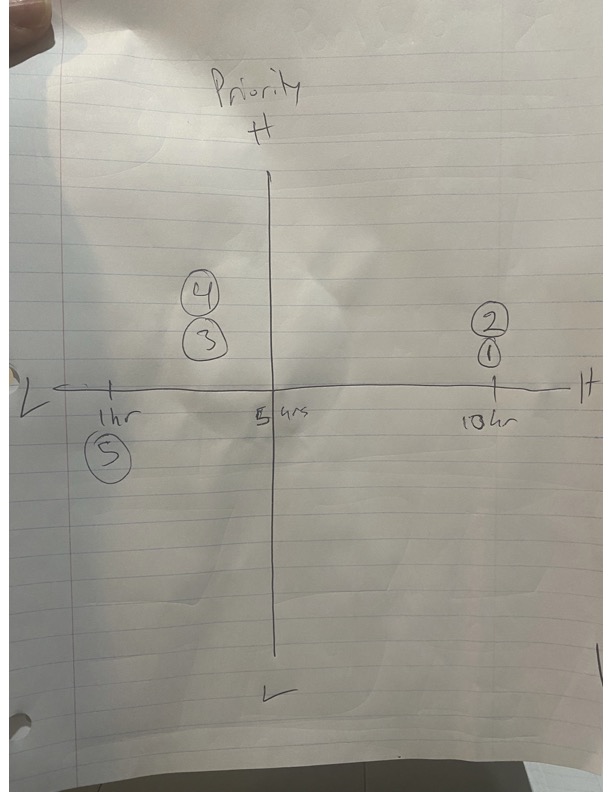 Priority
H
4
3
2
1
L
H
1hr
5 hrs
10hr
5
L